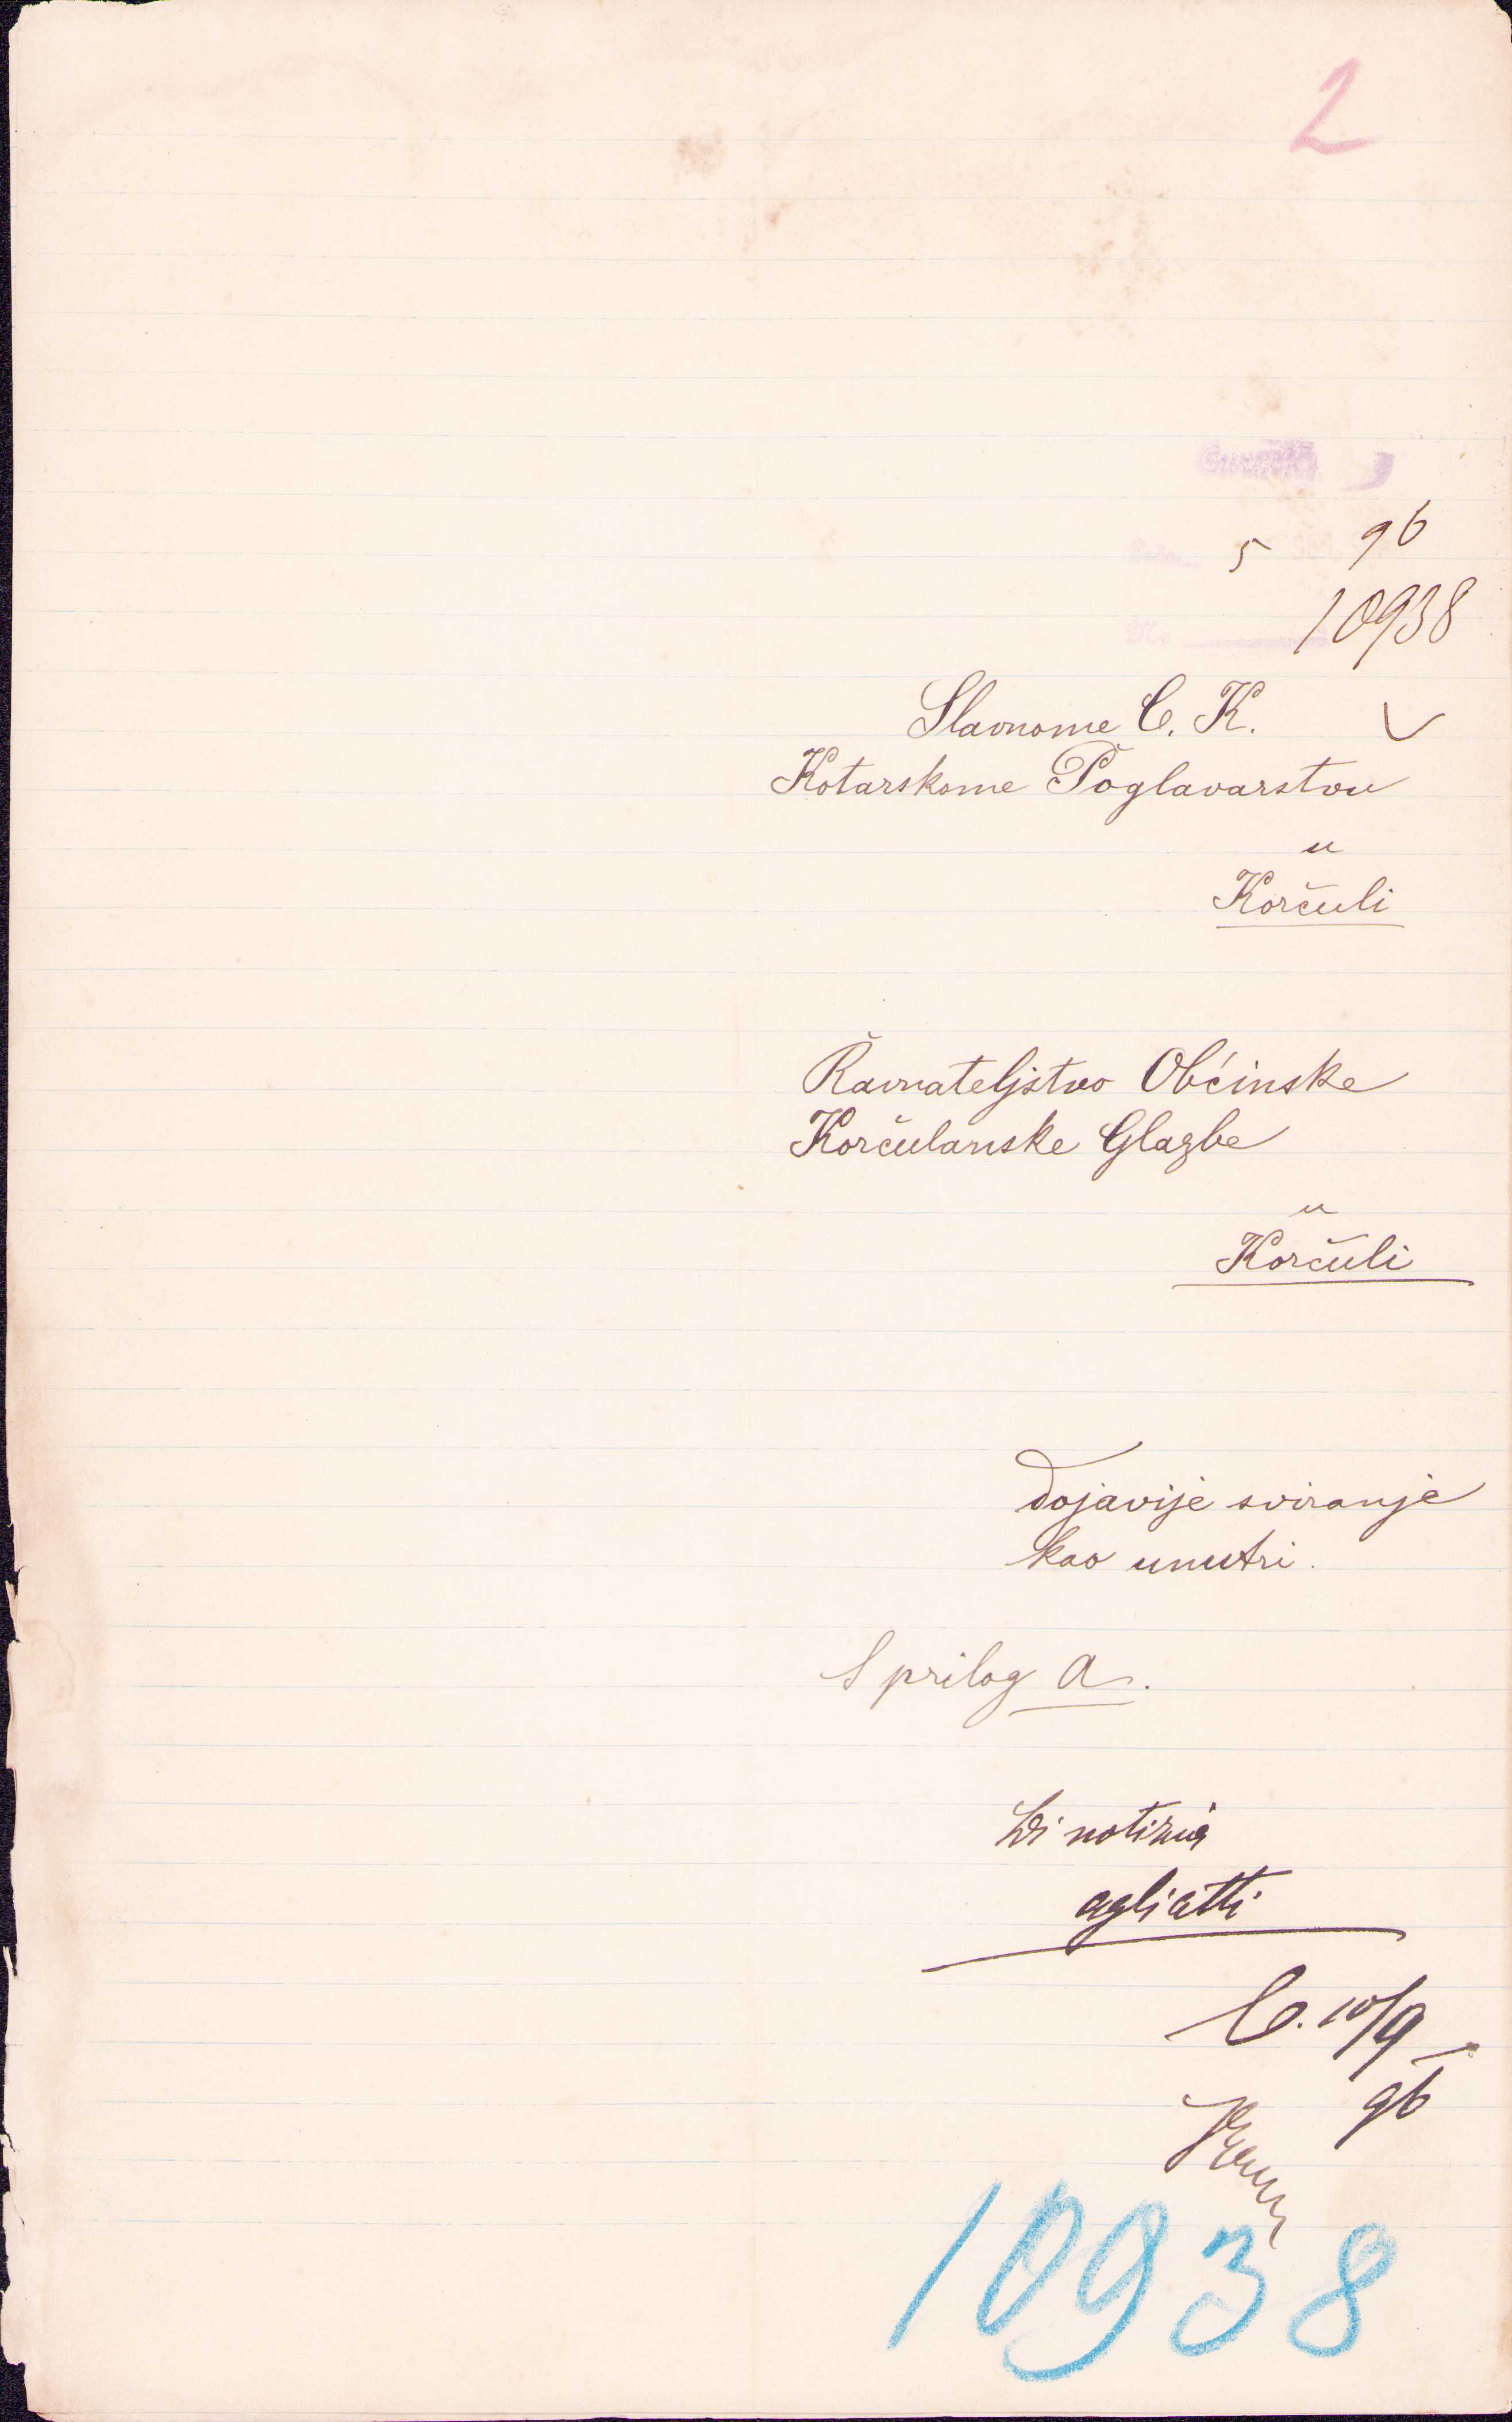 2
5 96
10938
Slavnome C. K.
Kotarskome Poglavarstvu
u
Korčuli
Ravnateljstvo Obćinske
Korčulanske Glazbe
u
Korčuli
Dojavije sviranje
kao unutri.
S prilog A.
Di notizia
agli atti
C. 10/9
96
10938